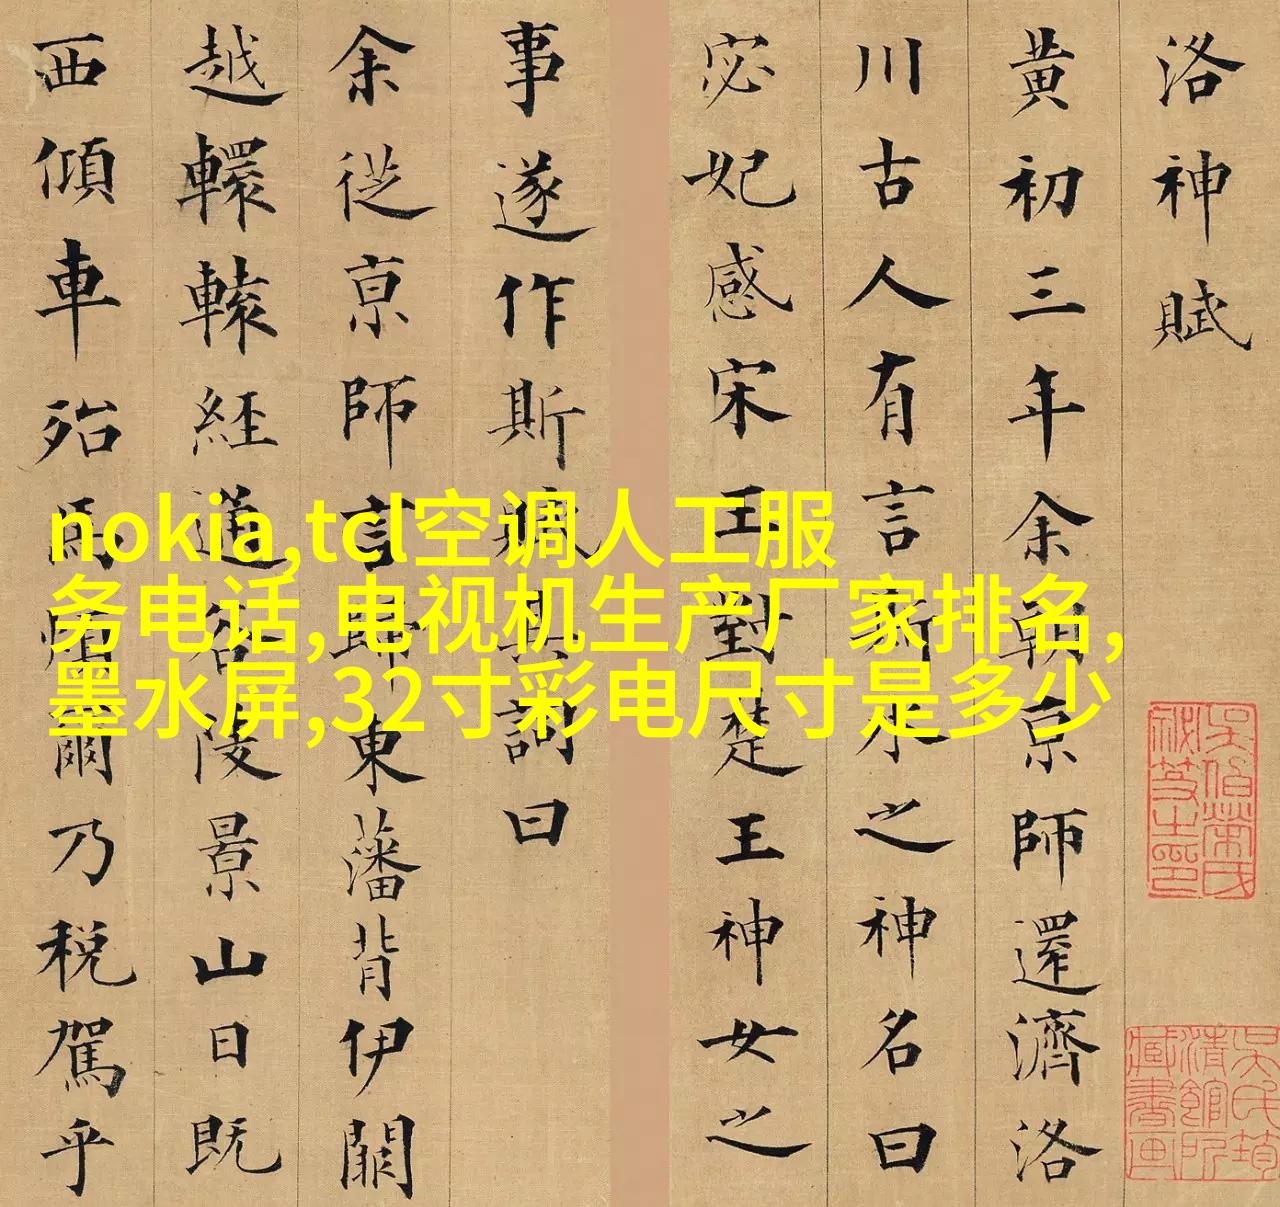 洛神賦
黄初三年余朝京師還濟洛
川古人有言斯水之神名曰
宓妃感宋玉對楚王神女之
事遂作斯賦其詞曰
余從京師言歸東藩背伊闕
越轘轅經通谷陵景山日既
西傾車殆馬煩爾乃稅駕乎
吳氏筠
清館所
藏書画
nokia,tcl空调人工服
务电话,电视机生产厂家排名,
墨水屏,32寸彩电尺寸是多少